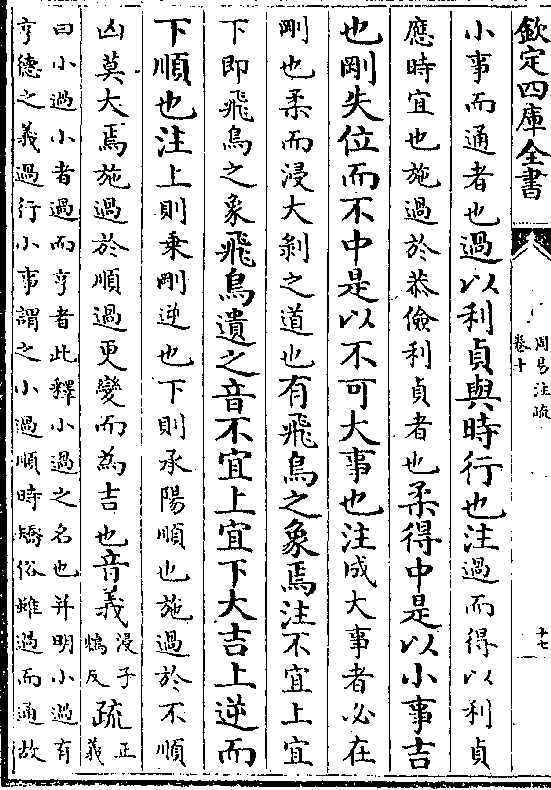 欽定四庫全書
周易注疏
卷十
十七
小事而通者也過以利貞與時行也注過而得以利貞
應時宜也施過於恭儉利貞者也柔得中是以小事吉
也剛失位而不中是以不可大事也注成大事者必在
剛也柔而浸大剝之道也有飛鳥之象焉注不宜上宜
下即飛鳥之象飛鳥遺之音不宜上宜下大吉上逆而
下順也注上則乘剛逆也下則承陽順也施過於不順
凶莫大焉施過於順過更變而為吉也音義浸子鴆反疏正義
曰小過小者過而亨者此釋小過之名也并明小過有
亨德之義過行小事謂之小過順時矯俗雖過而通故